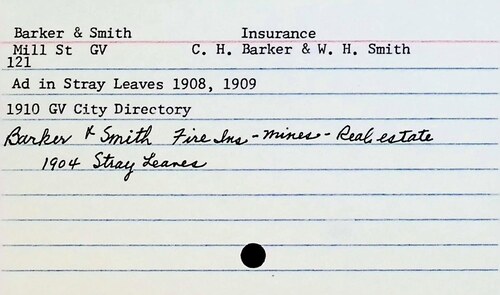 Barker & Smith Insurance
Mill St GV C. H. Barker & W. H. Smith
121
Ad in Stray Leaves 1908, 1909
1910 GV City Directory
Barker & Smith Fire Ins - mines - Real estate
1904 Stray Leaves